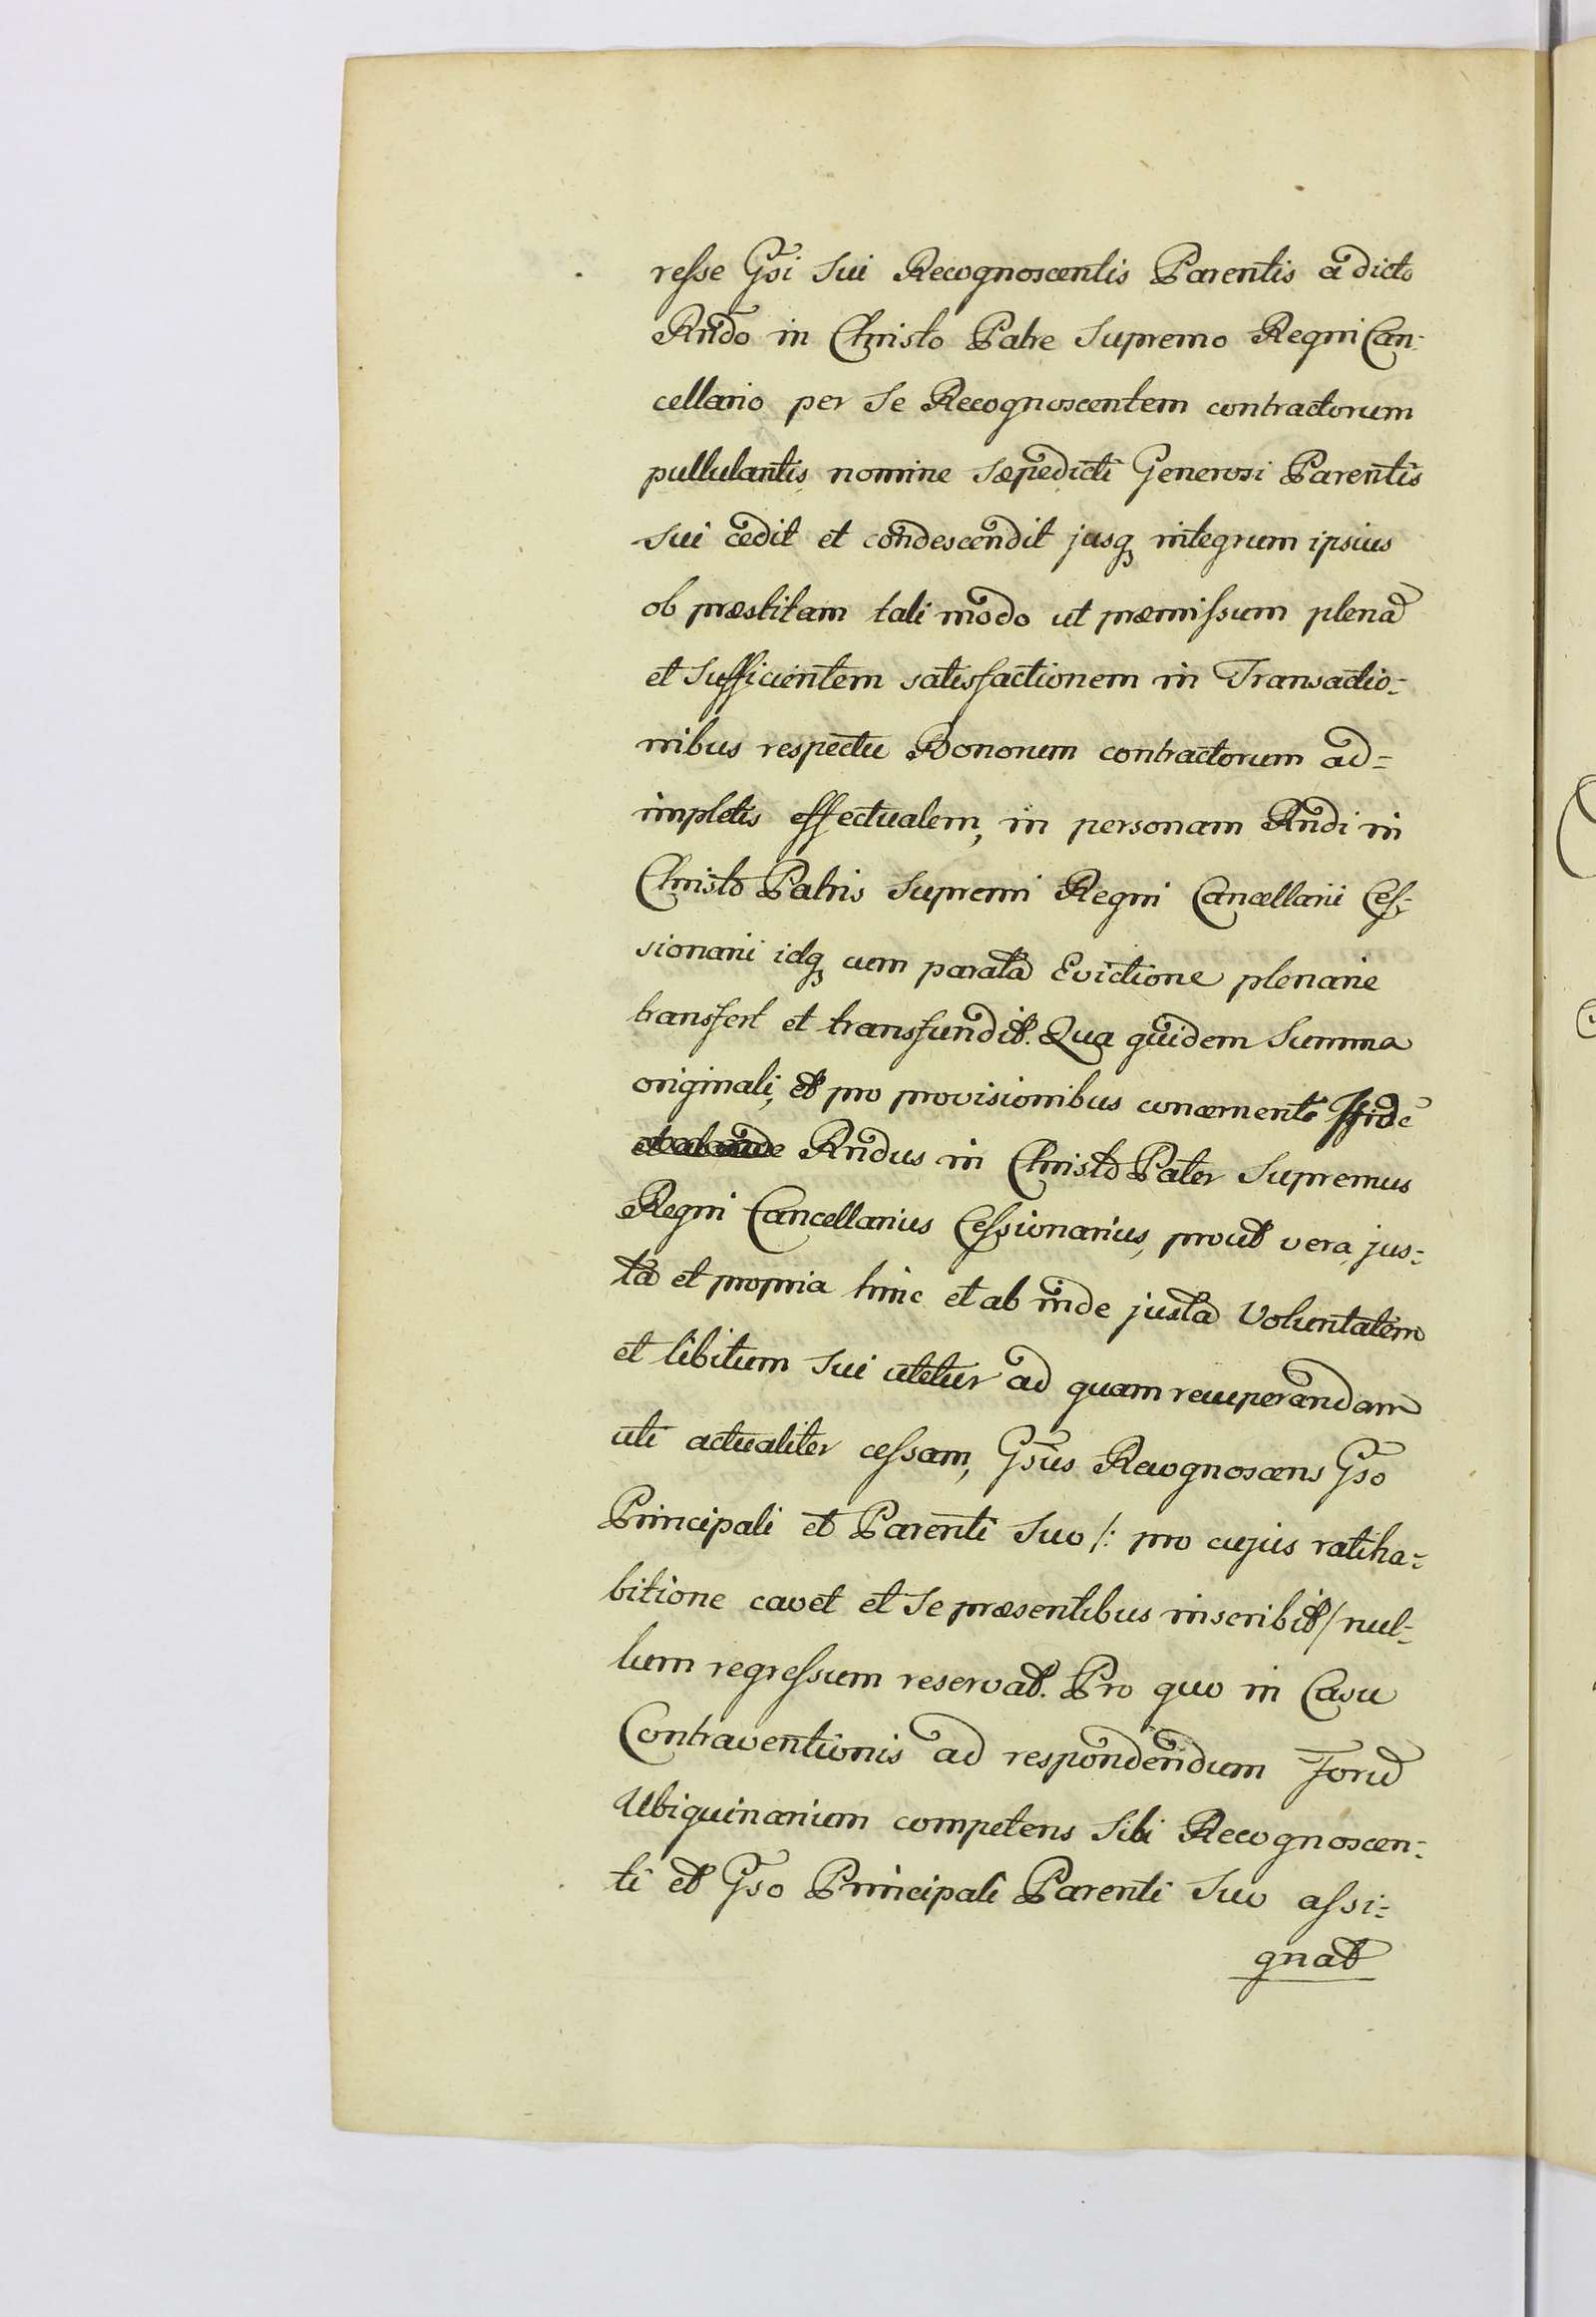 resse Gsi sui Recognoscentis Parentis a dicto
Rndo in Christo Patre Supremo Regni Can-
cellario per Se Recognoscentem contractorum
pullulantis nomine sæpedicti Generosi Parentis
sui cedit et condescendit jusq integrum ipsius
ob præstitam tali modo ut præmissum plenã
et Sufficientem satisfactionem in Transactio-
nibus respectu Bonorum contractorum ad=
impletis effectualem, in personam Rndi in
Christo Patris Supremi Regni Cancellarii Ces-
sionarii idq cum parata Evictione plenarie
transfert et transfundit. Qua quidem Summa
originali, et pro provisionibus concernente
Rndus in Christo Pater Supremus
Regni Cancellarius Cessionarius, prout vera, jus-
ta et propria hinc et ab inde justa Voluntatem
et libitum sui utetur ad quam recuperandam
uti actualiter cessam, Gsus Recognoscens Gso
Principali et Parenti Suo /: pro cujus ratiha-
bitione cavet et Se præsentibus inscribit / nul-
lum regressum reservat. Pro quo in Casu
Contraventionis ad respondendum Forũ
Ubiquinarium competens Sibi Recognoscen-
ti et Gso Principali Parenti Suo assi-
gnat